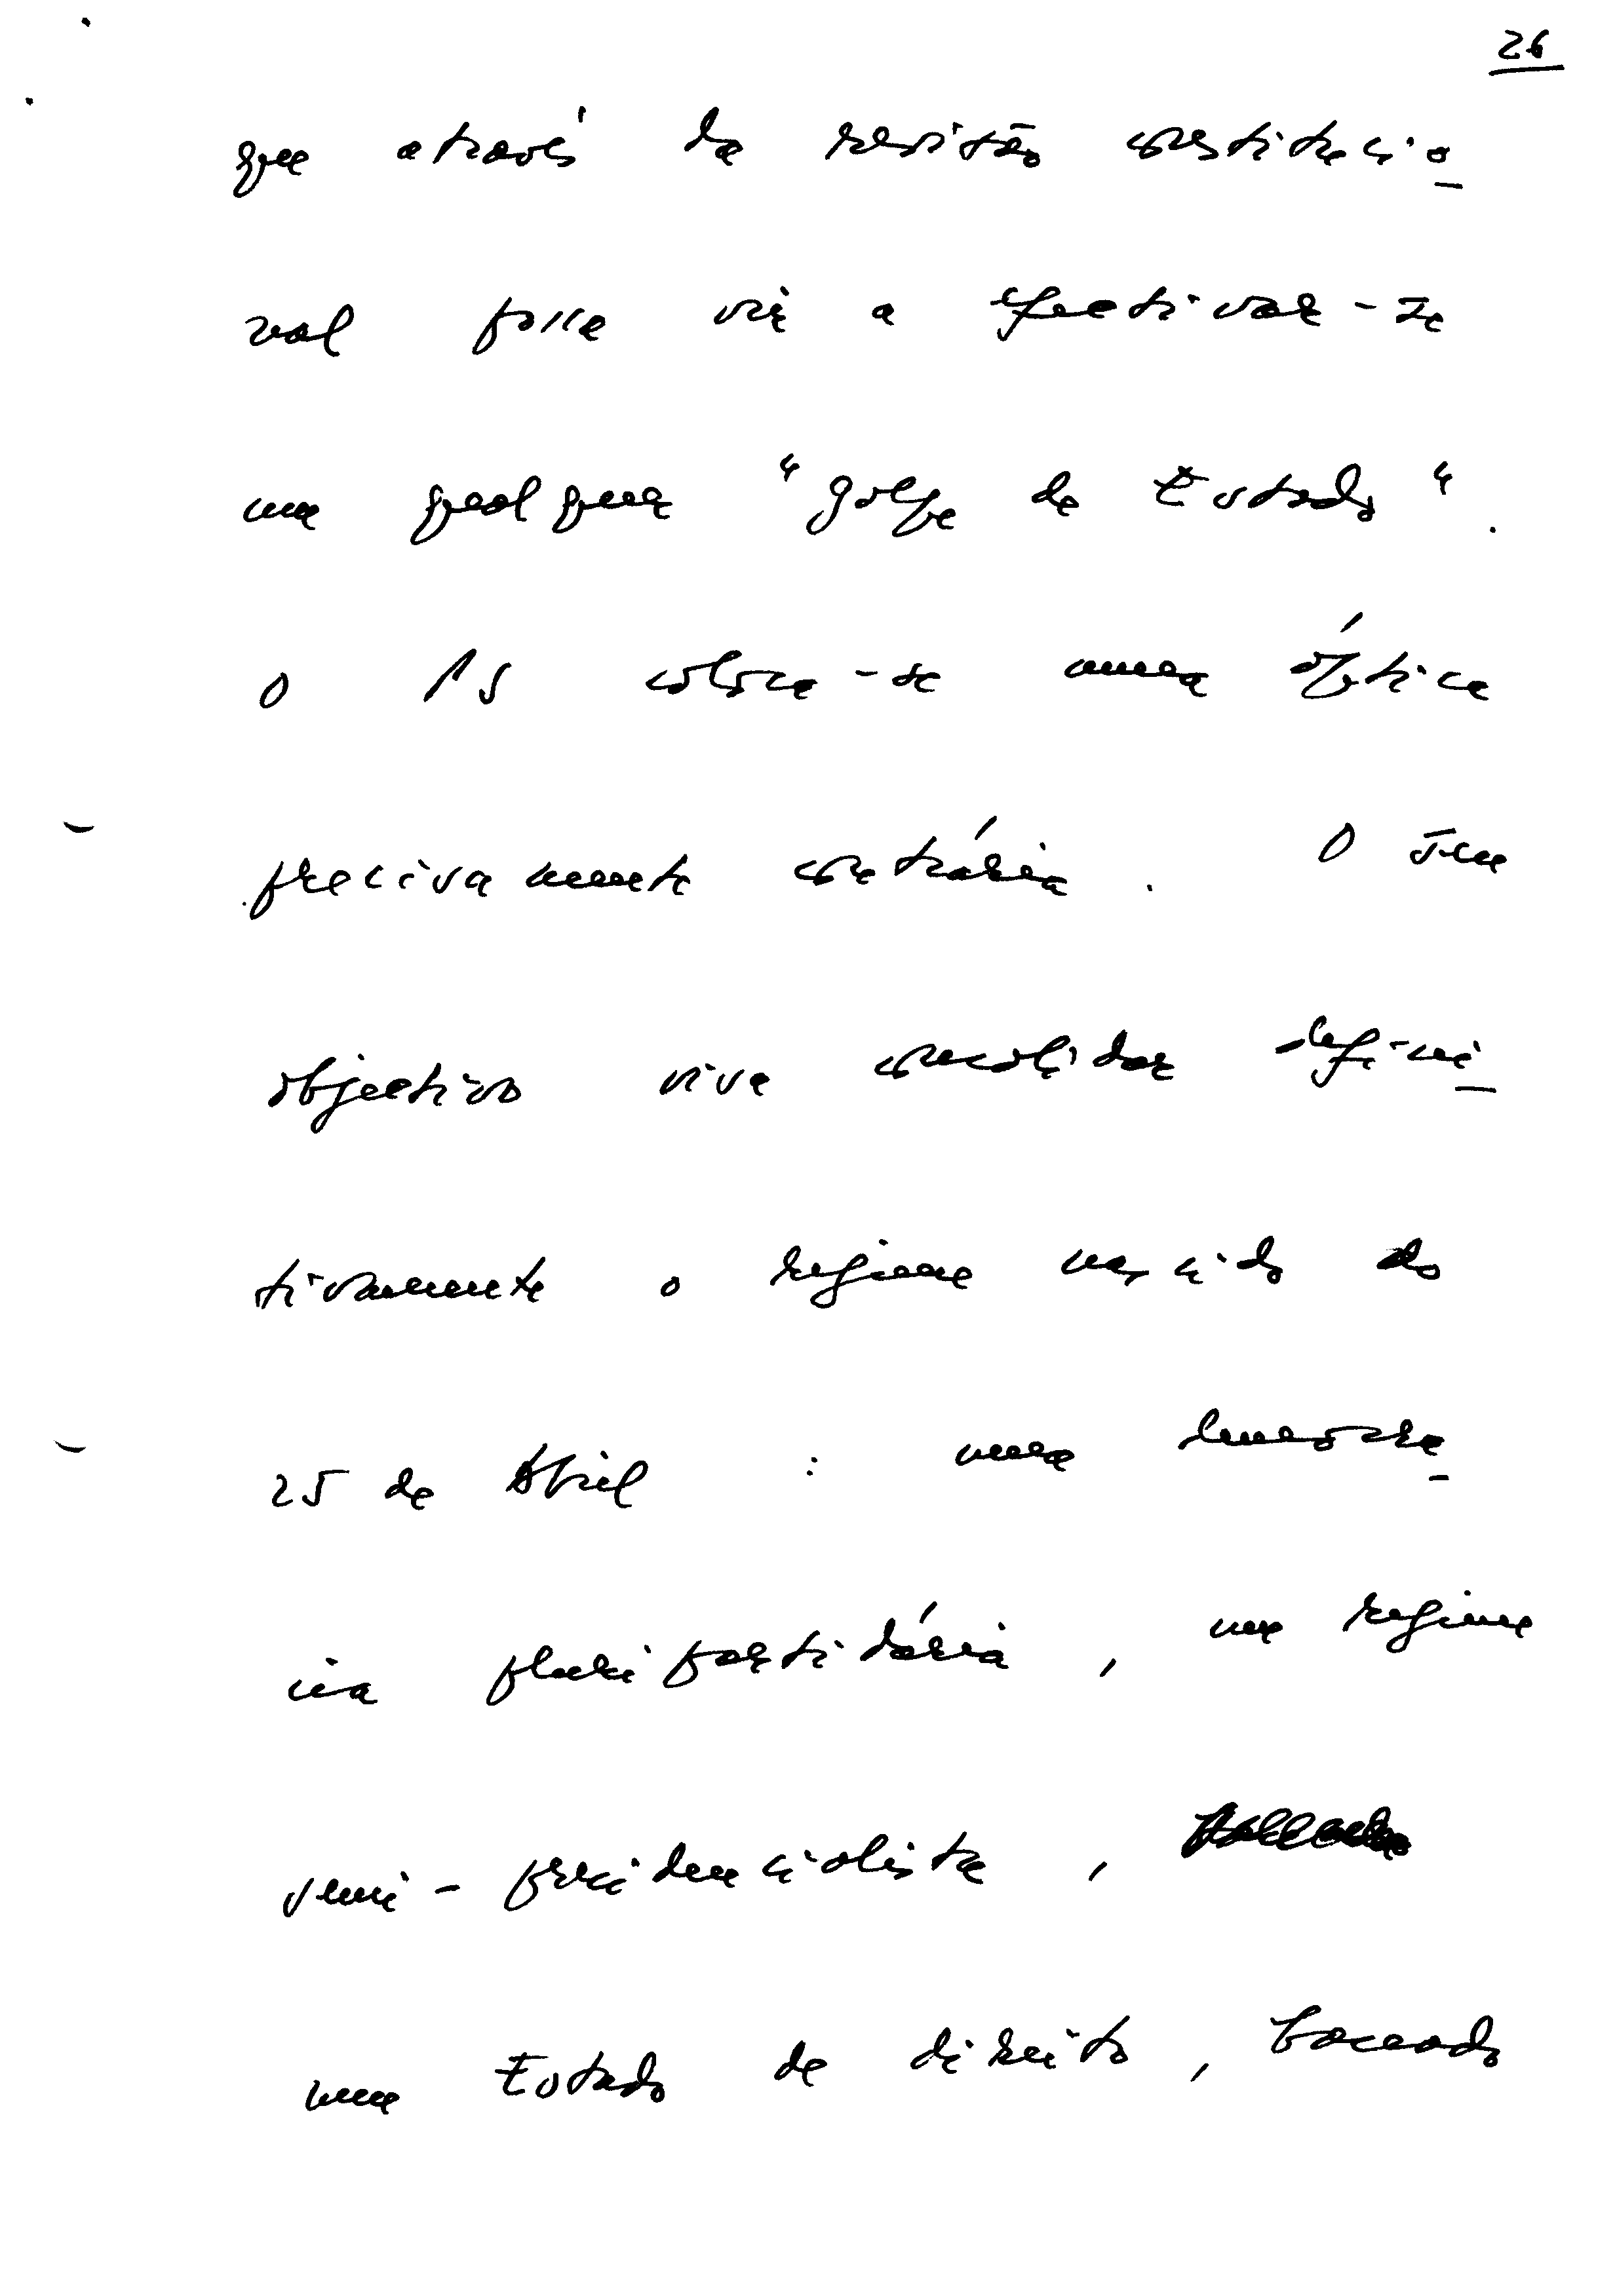 26
que através da revisão constitucio
nal possa vir a efectivar-se
um qualquer "golpe de Estado".
O PS coloca-se numa óptica
precisamente contrária. O seu
objectivo visa consolidar defini
tivamente o regime nascido do
25 de Abril : uma democra
cia pluripartidária, um regime
semi-presidencialista,
num Estado de direito, baseado